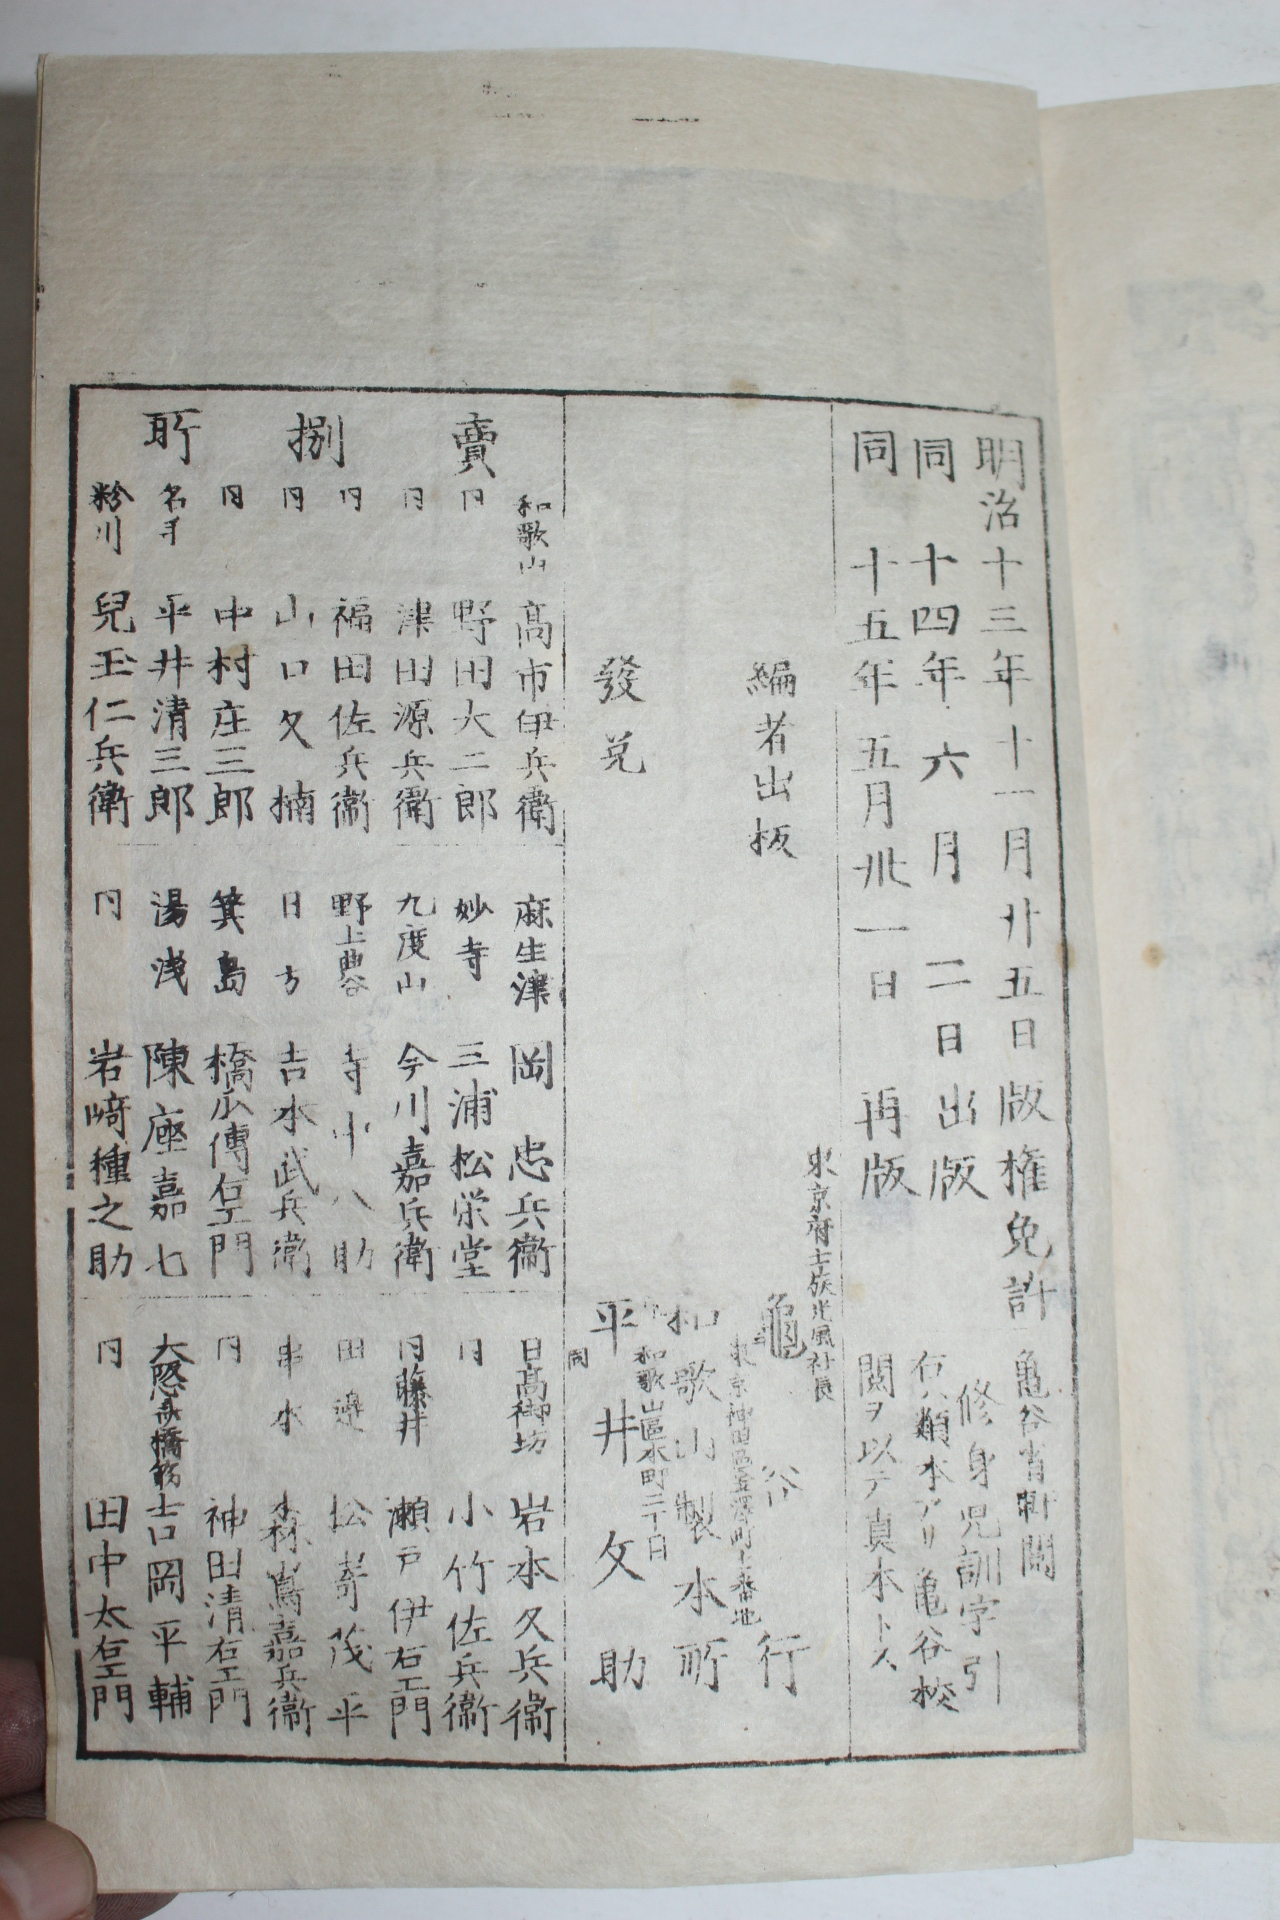 明治十三年十一月廿五日版権免許
同十四年六月二日出版
同十五年五月卅一日再版
亀谷省軒閲
修身児訓字引
右ハ類本アリ亀谷校
閲ヲ以テ真本トス
編者出板
東京府士族光風社長
亀谷行
東京神田區
町十番地
發兌
和歌山製本所
和歌山區本町二丁目
平井文助
同
賣捌所
和歌山 高市伊兵衛
同 野田大二郎
同 津田源兵衛
同 福田佐兵衛
同 山口久楠
同 中村庄三郎
名手 平井清三郎
粉川 兒玉仁兵衛
麻生津 岡忠兵衛
妙寺 三浦松栄堂
九度山 今川嘉兵衛
野上 寺中八助
日方 吉本武兵衛
箕島 橋爪傳右エ門
湯浅 陳座嘉七
同 岩﨑種之助
日高御坊 岩本久兵衛
同 小竹佐兵衛
同藤井 瀬戸伊右エ門
田邉 松嵜茂平
串本 森嶌嘉兵衛
同 神田清右エ門
大 橋筋 岡平輔
同 田中太右エ門